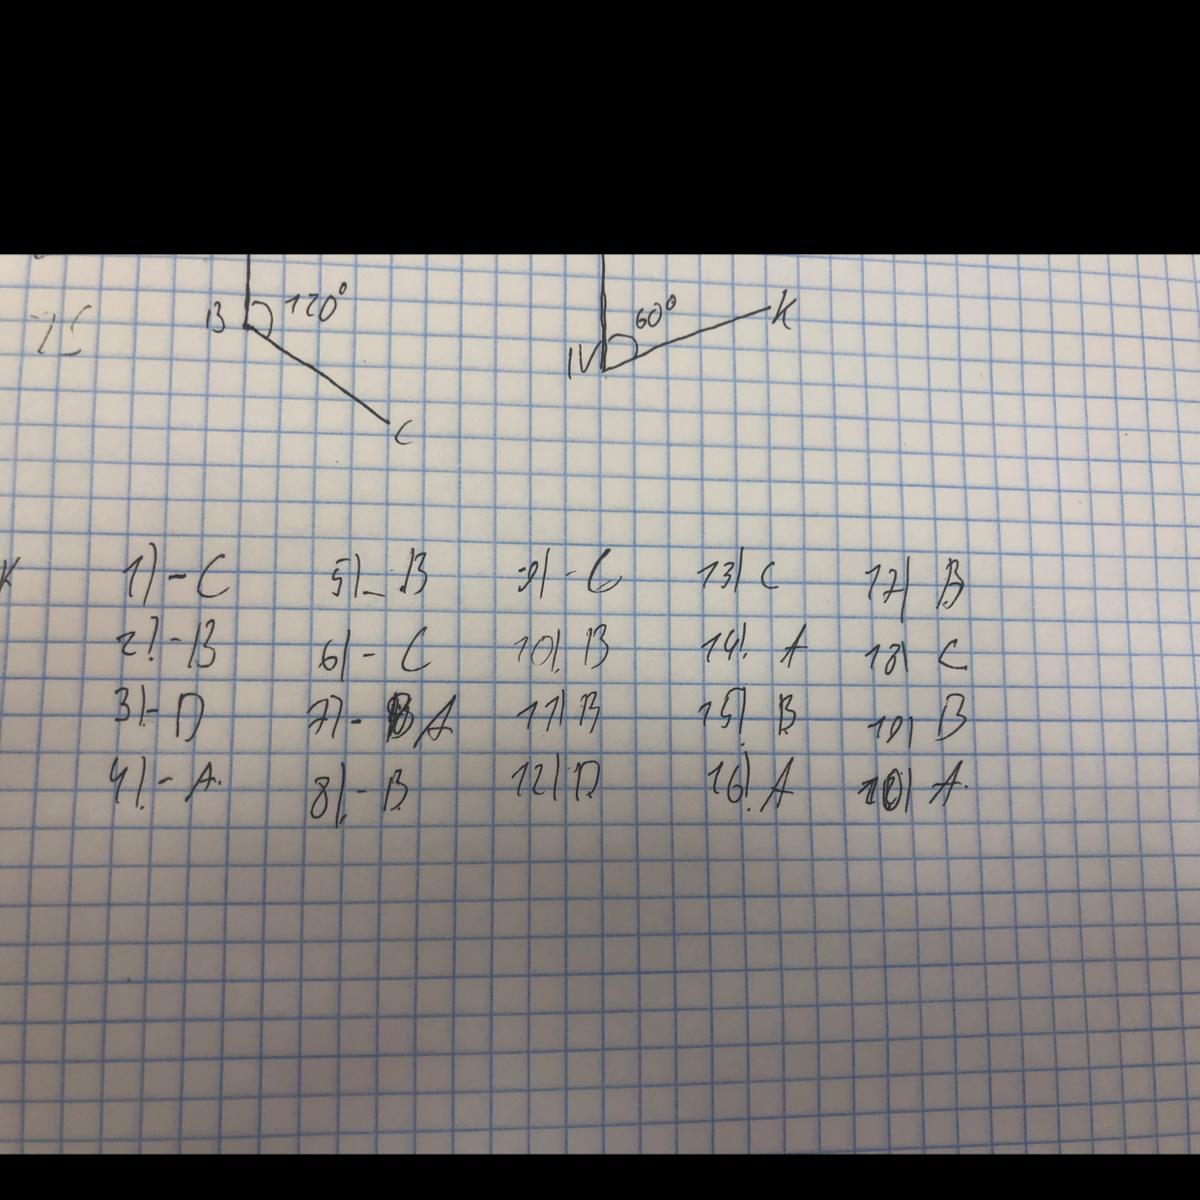 B 120° 60° K
N
C
1) - C 5) - B 9) - C 13) C 17) B
2) - B 6) - C 10) B 14) A 18) C
3) - D 7) - A 11) B 15) B 19) B
4) - A. 8) - B 12) D 16) A A.